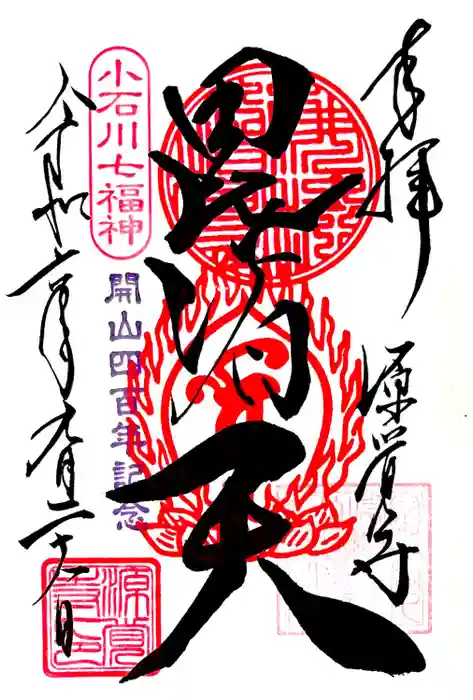 奉拝
源覚寺
毘沙門天
小石川七福神
開山四百年記念
令和六年九月二十八日
源覚寺印